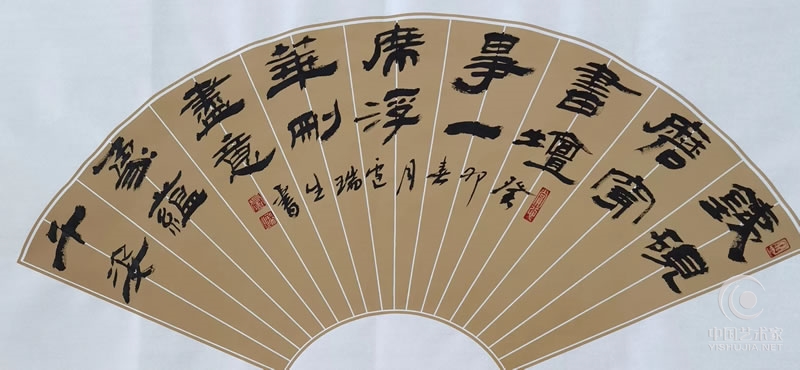 鐵硯
磨穿
書壇
事一
席浮
華刪
盡意
蘊
千
癸卯春月盧瑞生書
中国艺术家
YISHUJIA.NET